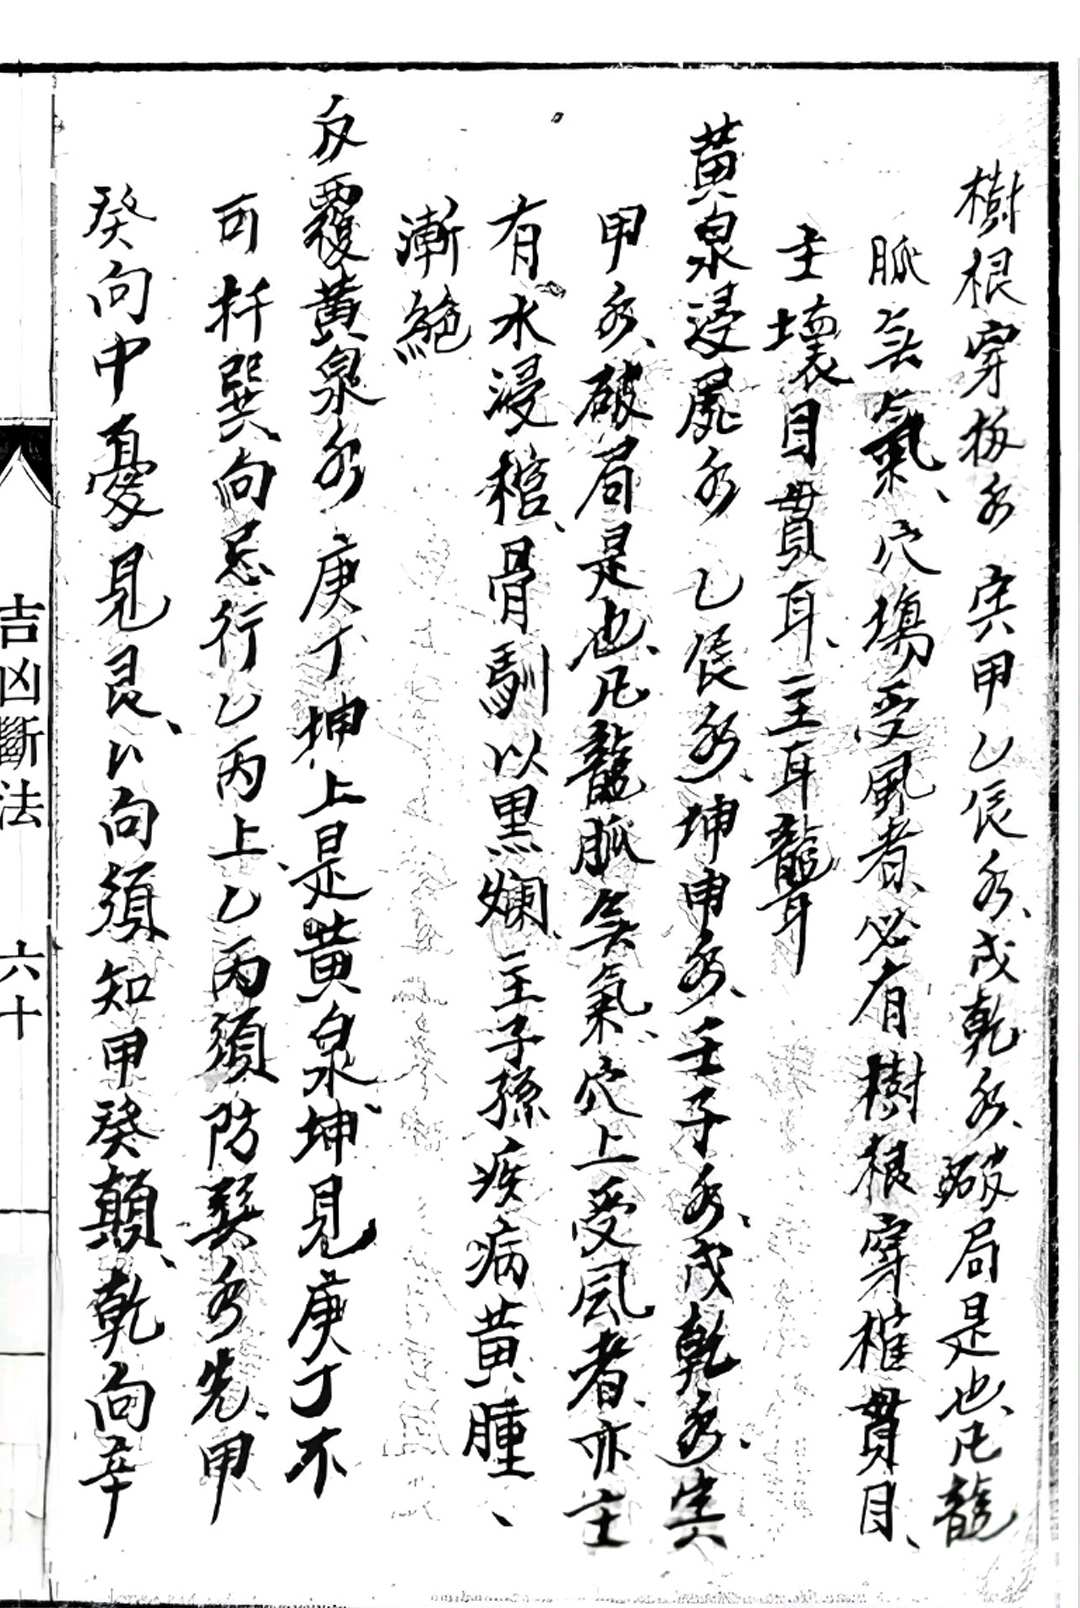 樹根穿板水寅甲乙辰水、戌乾水、破局是也、凡龍
脈無氣、穴塲受風者、必有樹根穿棺貫目、
主壞目貫耳、主耳聾
黃泉浸屍水乙辰水、坤申水、壬子水、戌乾水、寅
甲水、破局是也、凡龍脈無氣、穴上受風者、亦主
有水浸棺、骨馴以黑爛、主子孫疾病黃腫、
漸絕
反覆黃泉水庚丁坤上是黃泉、坤見庚丁不
可扦巽、向忌行乙丙上、乙丙須防巽水先、甲
癸向中憂見艮、以向須知甲癸顛、乾向辛
吉凶斷法 六十